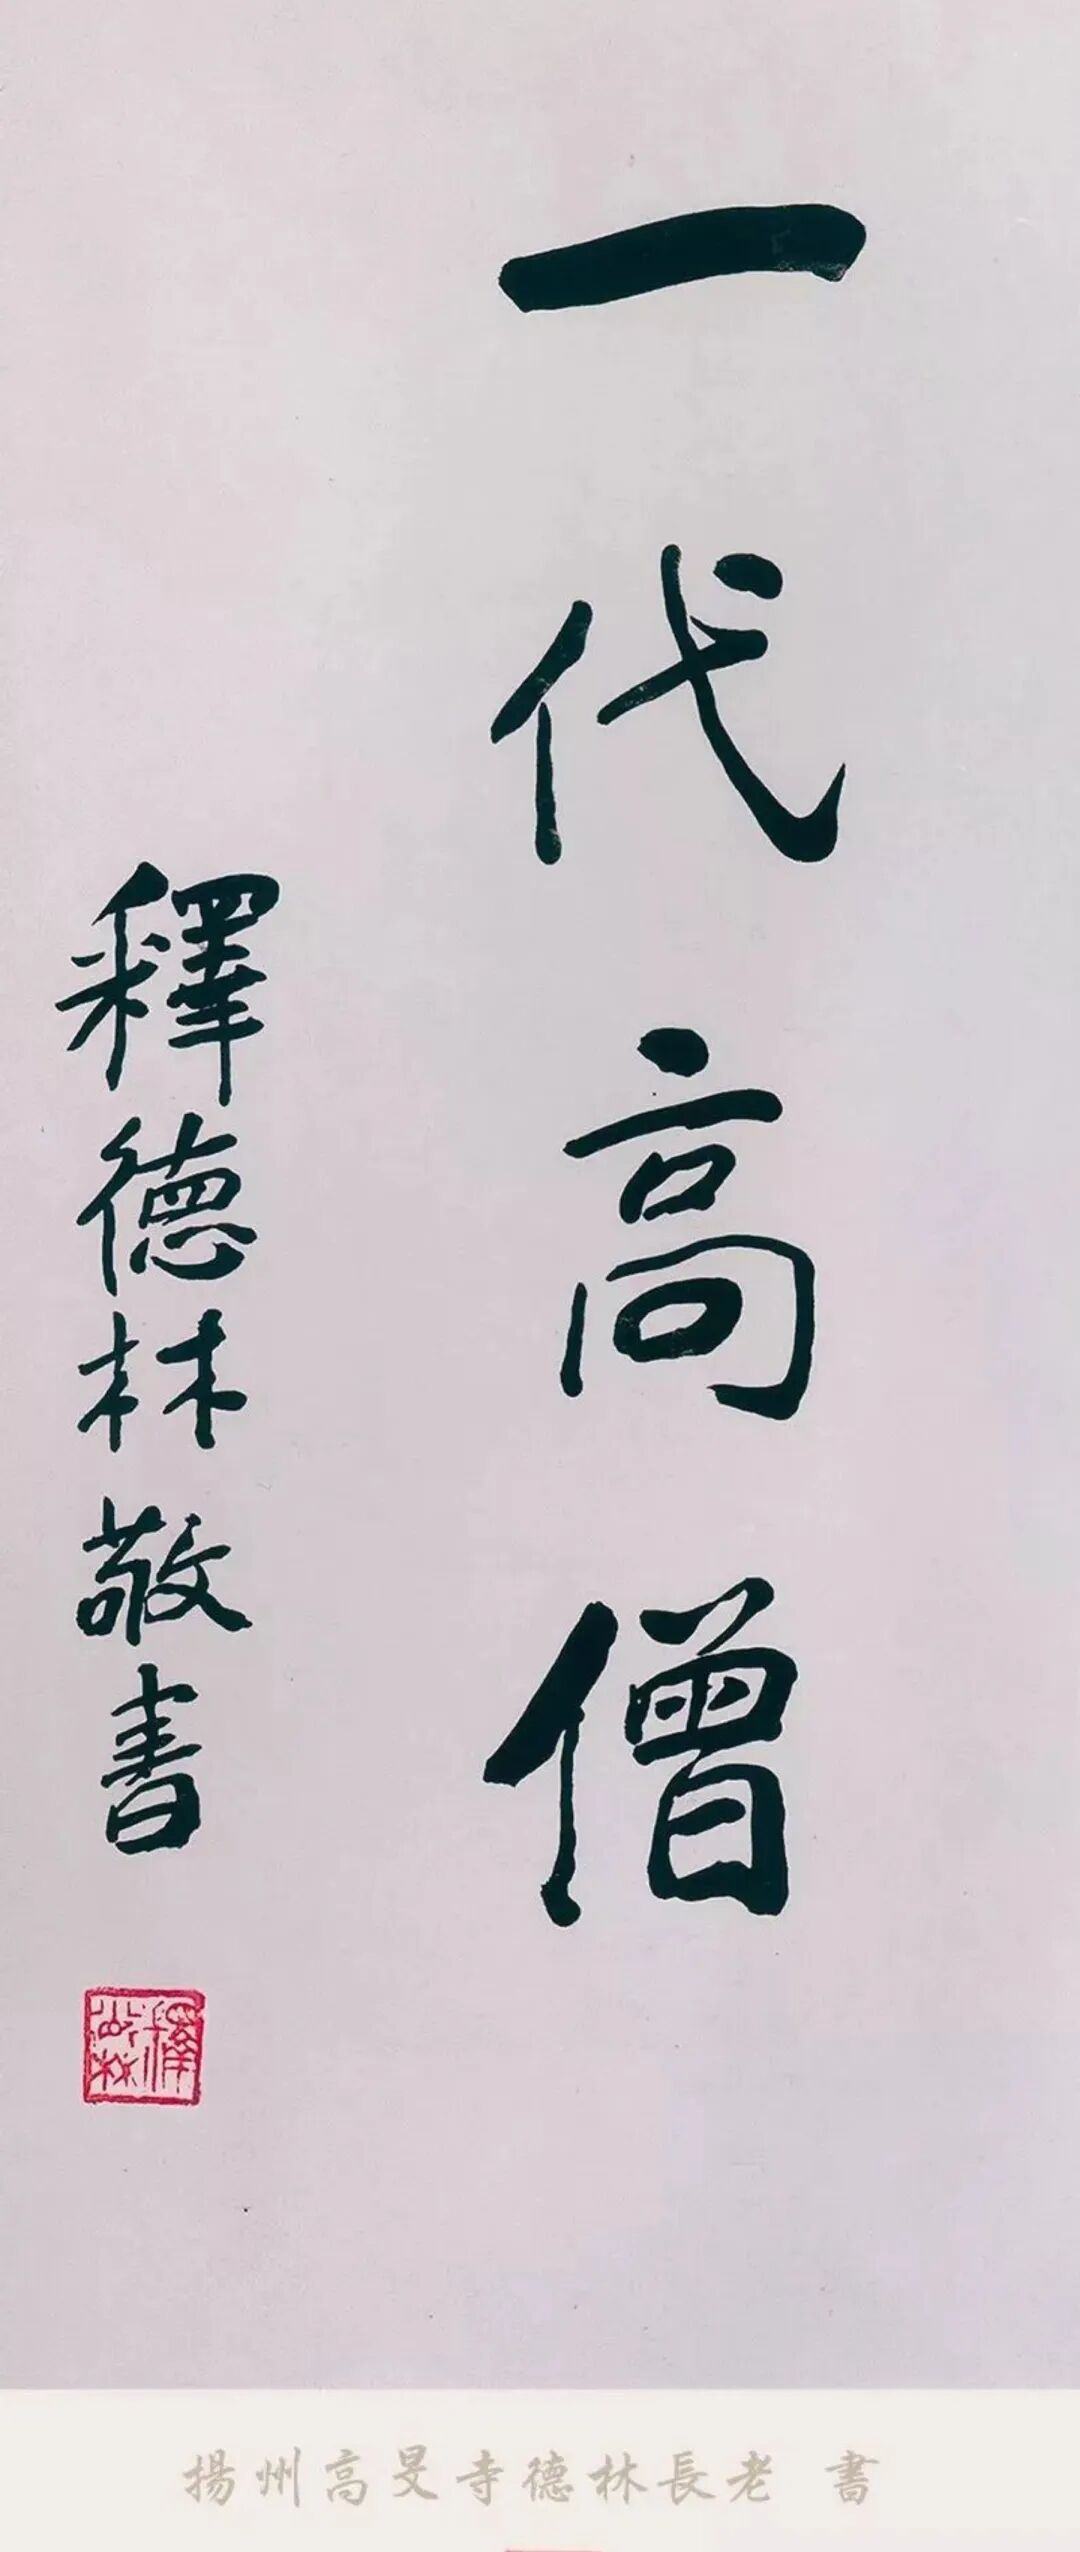 一代高僧
釋德林敬書
揚州高旻寺德林長老 書